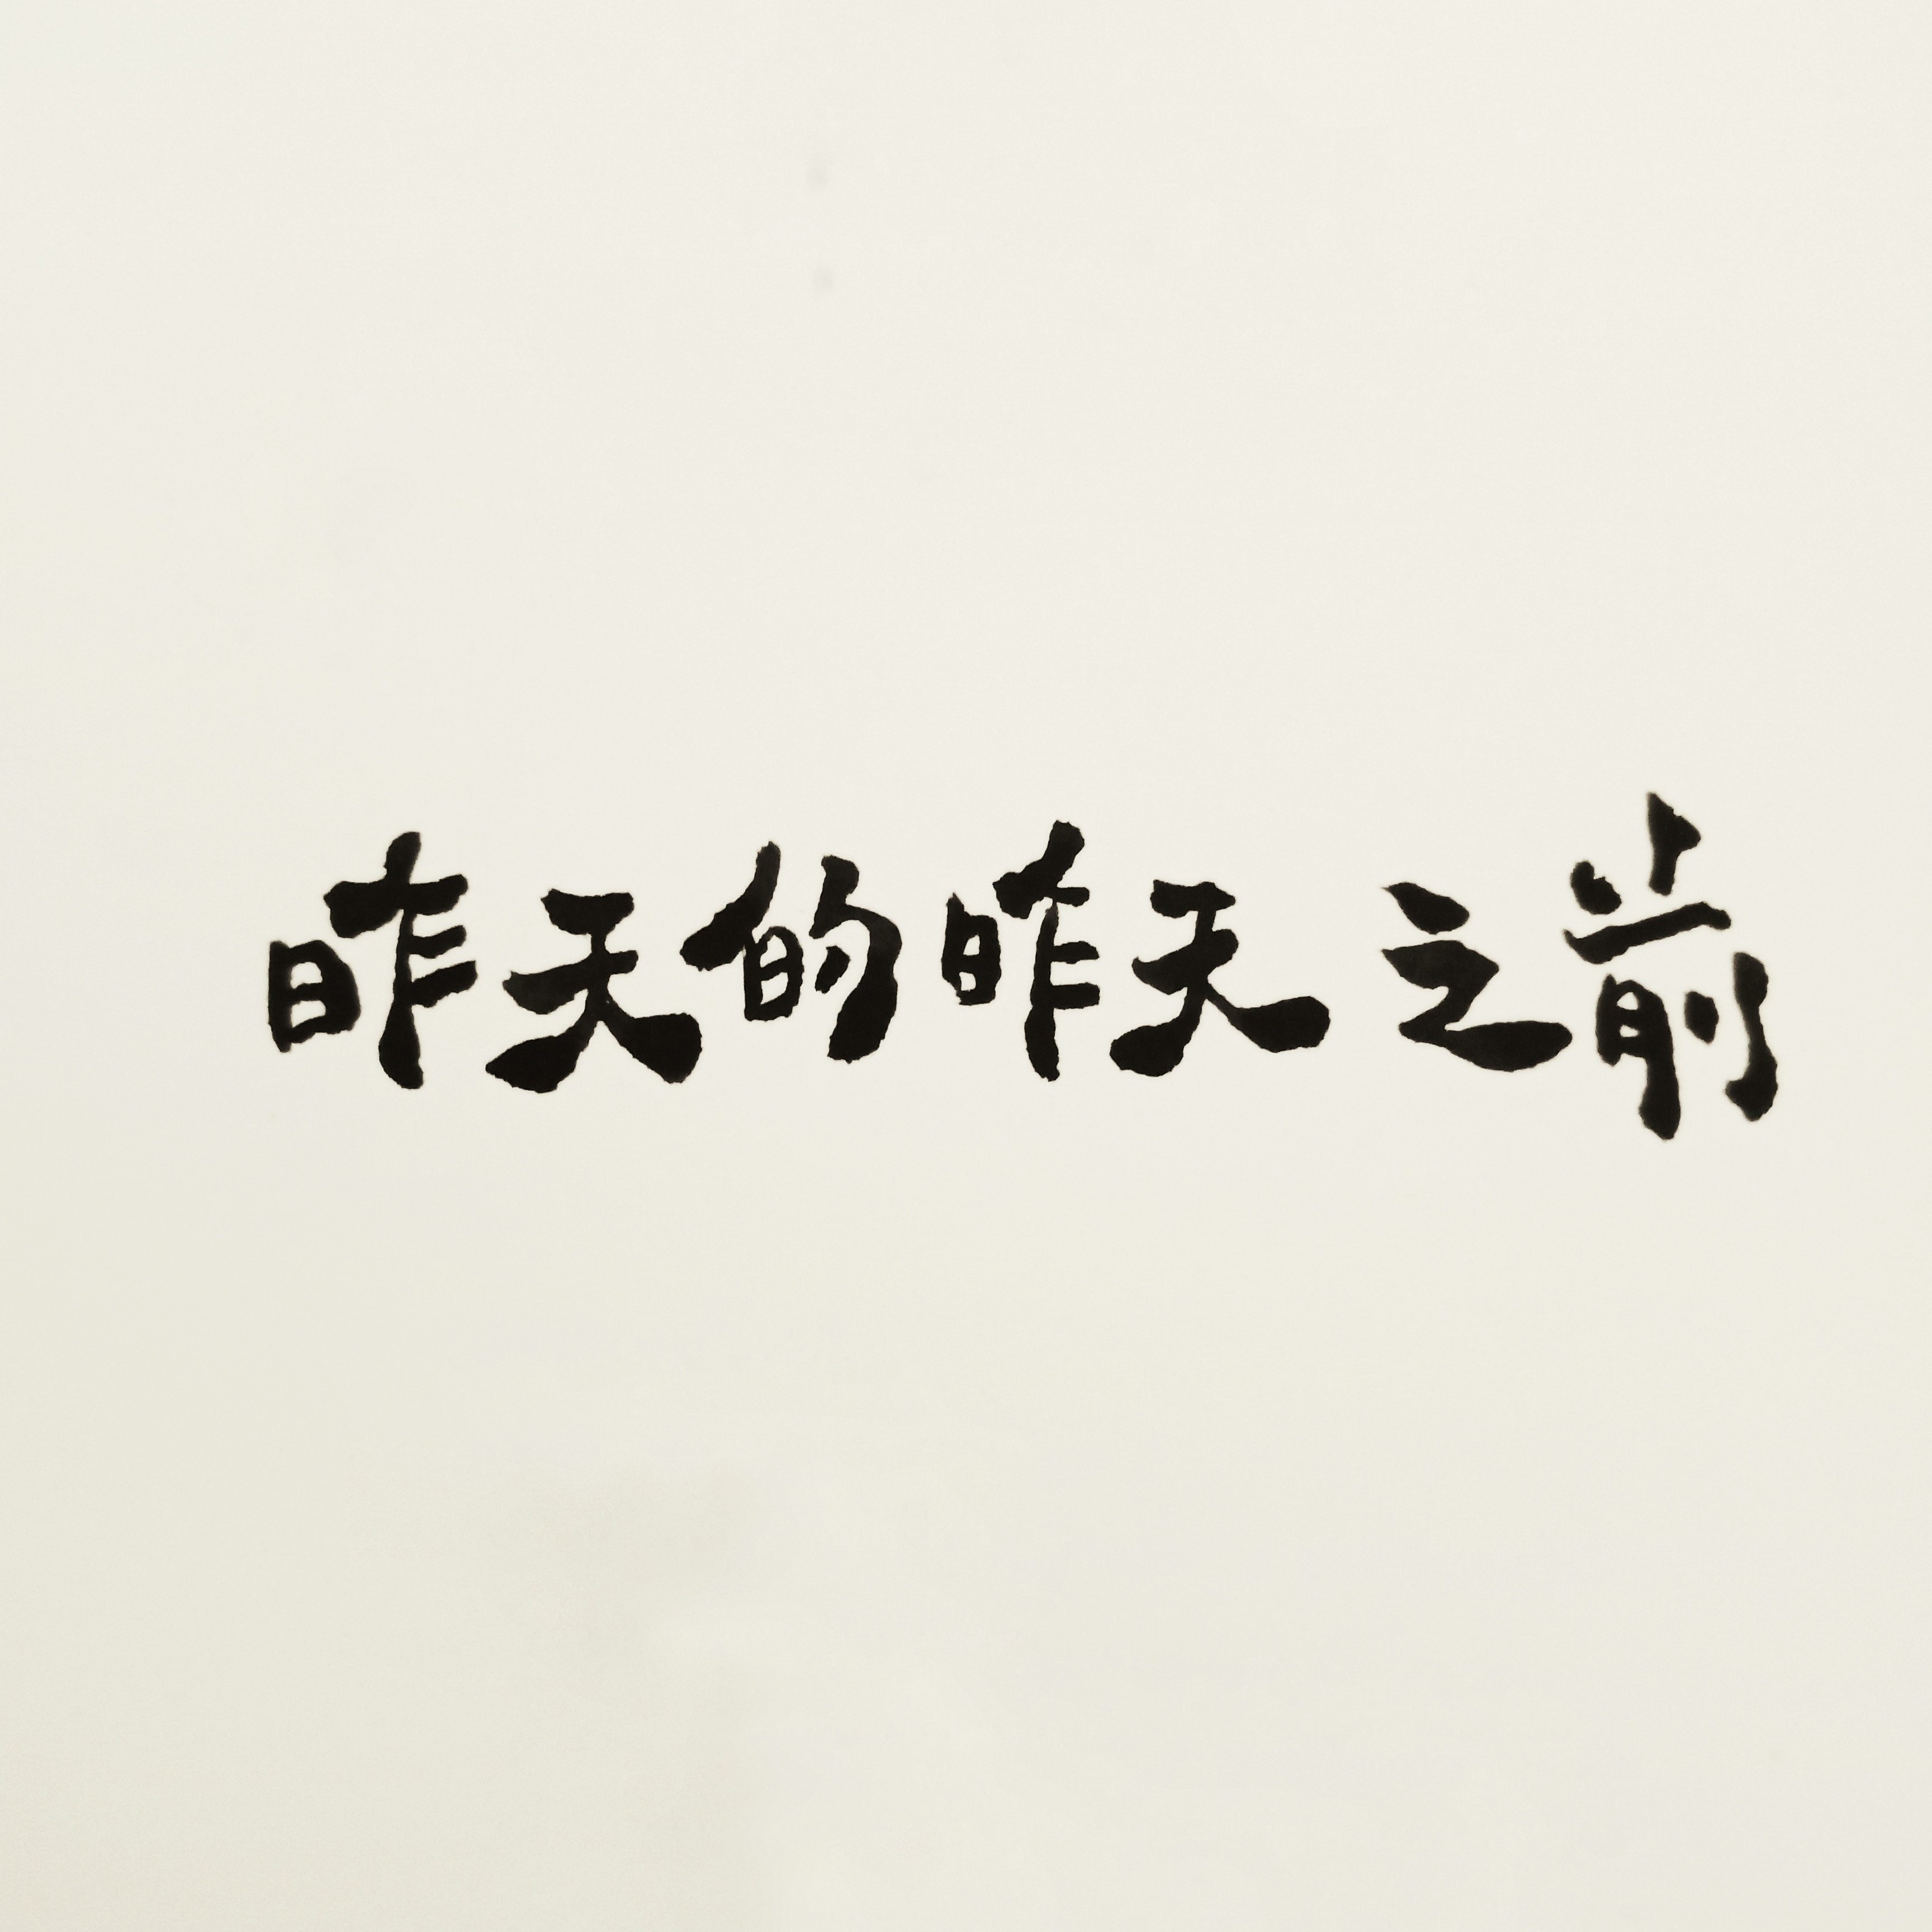 昨天的昨天之前